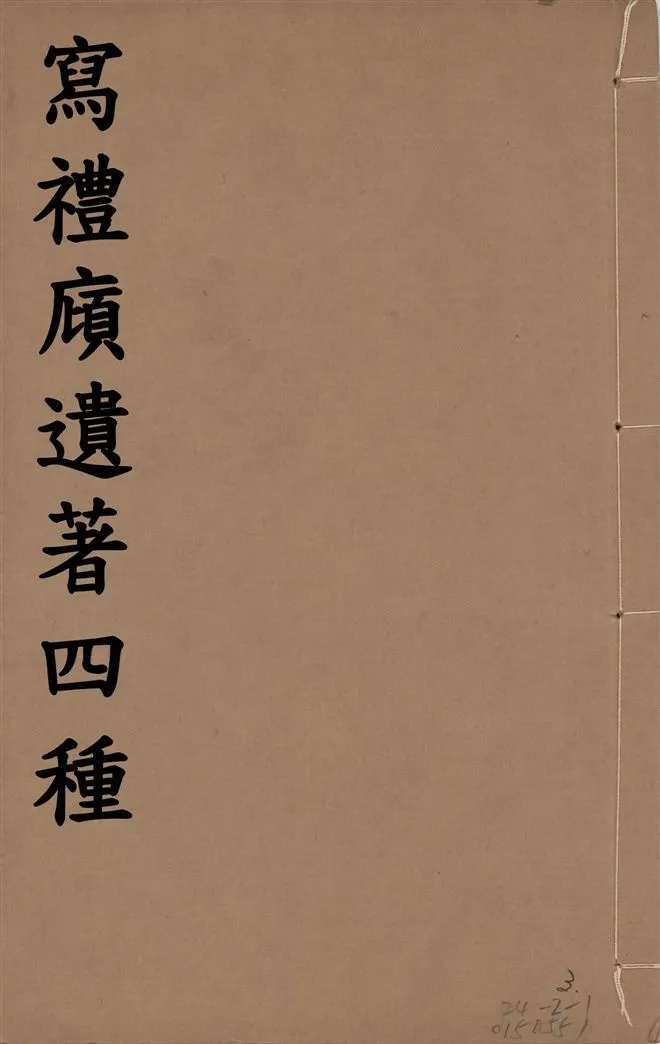 寫禮廎遺著四種
3.
24-2-1